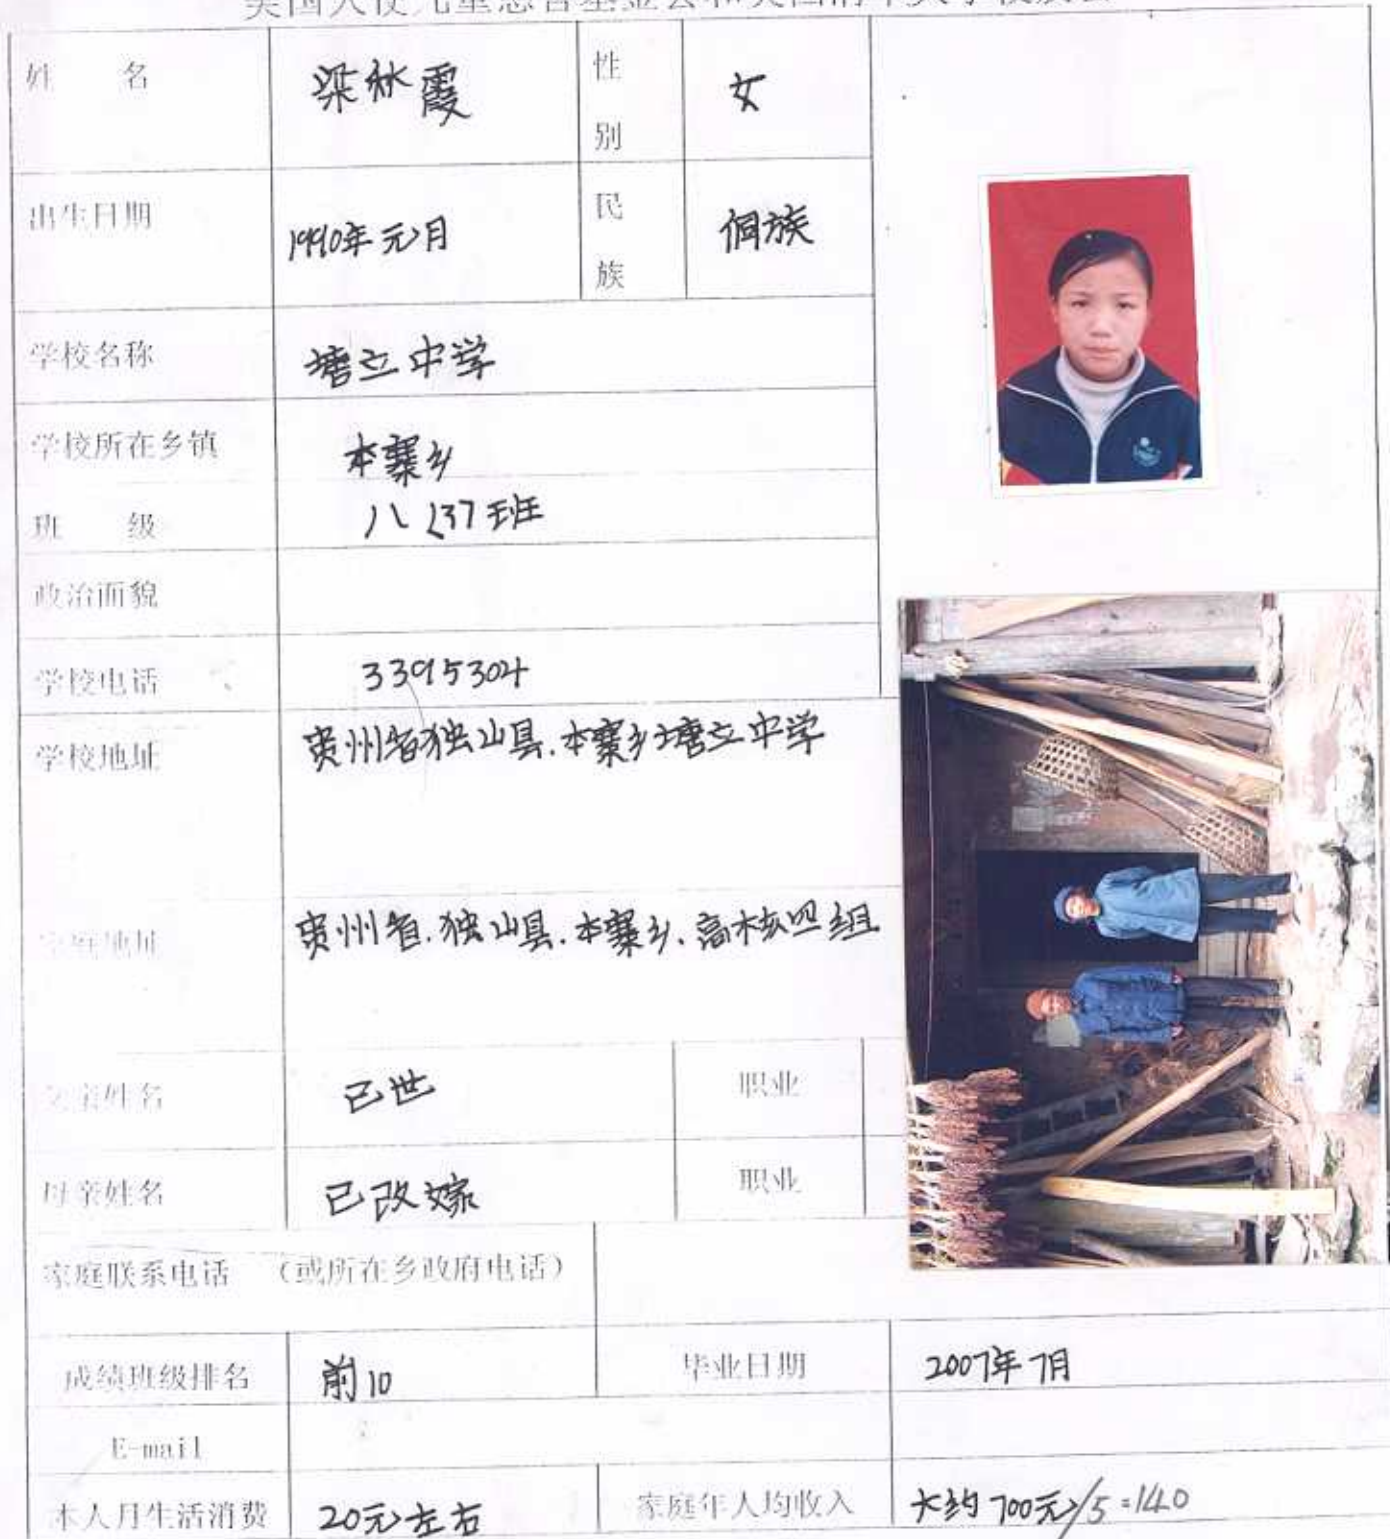 姓 名 梁秋霞 性别 女
出生日期 1990年元月 民族 侗族
学校名称 塘立中学
学校所在乡镇 本寨乡
班 级 八(3)班
政治面貌
学校电话 3395304
学校地址 贵州省独山县.本寨乡塘立中学
家庭地址 贵州省.独山县.本寨乡.高枧四组
父亲姓名 已世 职业
母亲姓名 已改嫁 职业
家庭联系电话 (或所在乡政府电话)
成绩班级排名 前10 毕业日期 2007年7月
E-mail
本人月生活消费 20元左右 家庭年人均收入 大约700元/5=140